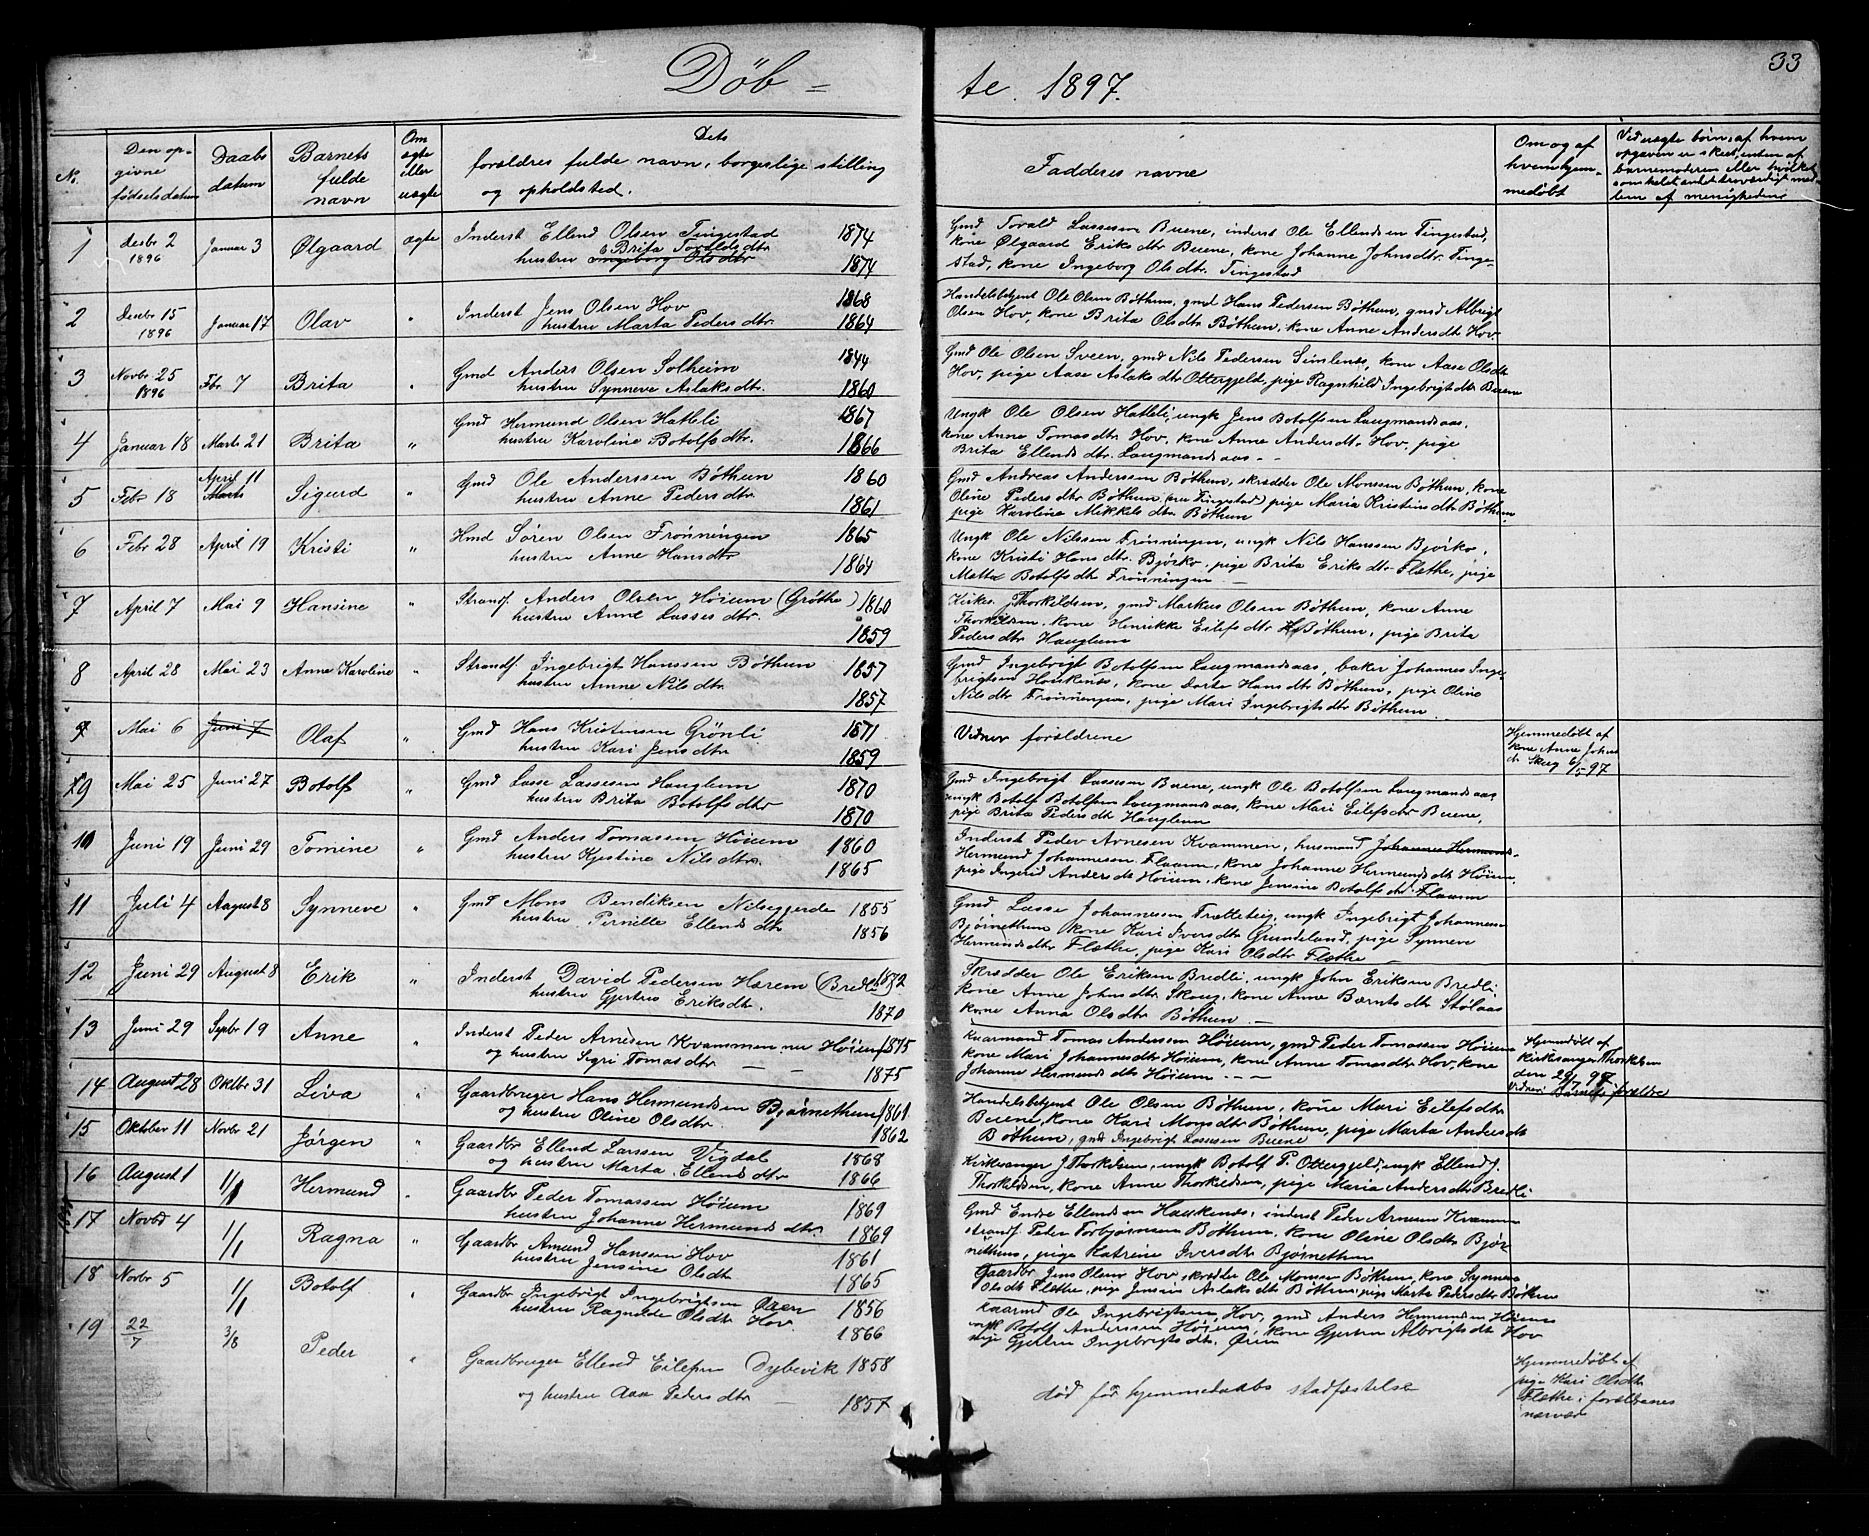 33
Döb = te. 1897.
No.
Den op-
givne
fødselsdatum
Daabs
datum
Barnets
fulde
navn
Om
ægte
eller
uægte
Dets
forældres fulde navn, borgerlige stilling
og opholdsted.
Fadderes navne
Om og af
hvem hjem-
medøbt
Ved uægte børn, af hvem
opgaven er skeet, enten af
barnemoderen eller hvilket
somhelst andet troværdigt med-
lem af menigheden
1 Desbr 2 1896 Januar 3 Ølgaard ægte
Inderst Ellend Olsen Tingestad 1874
Brita Toraldsdtr
hustru Ingeborg Olsdtr 1874
Gmd Torald Lassesen Buene, inderst Ole Ellendsen Tingestad,
kone Ølgaard Eriksdtr Buene, kone Johanne Johnsdtr. Tinge-
stad, kone Ingeborg Olsdtr. Tingestad
2 Desbr 15 1896 Januar 17 Olav "
Inderst Jens Olsen Hov 1868
hustru Marta Pedersdtr 1864
Handelsbetjent Ole Olsen Bøthun, gmd Hans Pedersen Bøthun, gmd Albrigt
Olsen Hov, kone Brita Olsdtr Bøthun, kone Anne Andersdtr Hov
3 Novbr 25 1896 Fbr 7 Brita "
Gmd Anders Olsen Solheim 1844
hustru Synneve Aslaksdtr. 1860
Gmd Ole Olsen Sveen, gmd Nils Pedersen Simlenes, kone Aase Olsdtr
Hov, pige Aase Aslaksdtr Ottergjeld, pige Ragnhild Ingebrigtsdtr Buene
4 Januar 18 Marts 21 Brita "
Gmd Hermund Olsen Hatleli 1867
hustru Karoline Botolfsdtr. 1866
Ungk Ole Olsen Hatleli, ungk Jens Botolfsen Laugmandsaas,
kone Anne Tomasdtr Hov, kone Anne Andersdtr Hov, pige
Brita Ellendsdtr. Laugmandsaas - -
5 Febr 18 April 11 Marts Sigurd "
Gmd Ole Anderssen Bøthun 1860
hustru Anne Pedersdtr 1861
Gmd Andreas Anderssen Bøthun, skrædder Ole Monssen Bøthun, kone
Oline Pedersdtr Bøthun (nu Tingestad) pige Maria Kristinsdtr Bøthun
pige Karoline Mikkelsdtr Bøthun
6 Febr 28 April 19 Kristi "
Hmd Søren Olsen Frønningen 1865
hustru Anne Hansdtr 1864
Ungk Ole Nilssen Frønningen, ungk Nils Hanssen Bjørko,
kone Kristi Hansdtr. Bjørko, pige Brita Eriksdtr Flæthe, pige
Matta Botolfsdtr Frønningen -
7 April 7 Mai 9 Hansine "
Strands. Anders Olsen Høium (Grøthe) 1860
hustru Anne Lassesdtr. 1859
Kirkes. J Thorkildsen, gmd Markus Olsen Bøthun, kone Anne
Thorkildsen, kone Henrikke Eilefsdtr Bøthun, pige Brita
Pedersdtr Hauglum
8 April 28 Mai 23 Anne Karoline "
Strands. Ingebrigt Hanssen Bøthun 1857
hustru Anne Nilsdtr 1857
Gmd Ingebrigt Botolfsen Laugmandsaas, baker Johannes Inge-
brigtsen Haukenes, kone Dorte Hansdtr Bøthun, pige Oline
Nilsdtr Frønningen, pige Mari Ingebrigtsdtr Bøthun
Mai 6 Juni 7 Olaf "
Gmd Hans Kristensen Grønli 1871
hustru Kari Jensdtr 1859
Vidner forældrene
Hjemmedøbt af
kone Anne Johns
dtr Skug 6/5 97
9 Mai 25 Juni 27 Botolf "
Gmd Lasse Lassesen Hauglum 1870
hustru Brita Botolfsdtr 1870
Gmd Ingebrigt Lassesen Buene, ungk Ole Botolfsen Laugmandsaas,
ungk Botolf Botolfsen Laugmandsaas, kone Mari Eilefsdtr Buene,
pige Brita Pedersdtr Hauglum
10 Juni 19 Juni 29 Tomine "
Gmd Anders Tomassen Høium 1860
hustru Kjestine Nilsdtr. 1865
Inderst Peder Arnesen Kvammen, husmand Johannes Hermunds-
Hermund Johannesen Flaam, kone Johanne Hermundsdtr Høium,
pige Ingrid Andersdtr Høium, kone Jensine Botolfsdtr Flaam
11 Juli 4 August 8 Synneve "
Gmd Mons Bendiksen Nilseggjerde 1855
hustru Pernille Ellendsdtr 1856
Gmd Lasse Johannessen Trætteteig, ungk Ingebrigt Johannessen
Bjørnethun kone Kari Iversdtr Grundeland, pige Synneve
Hermundsdtr Flæthe, pige Kari Olsdtr Flæthe -
12 Juni 29 August 8 Erik "
Inderst David Pedersen Hærem (Bredli) 1872
hustru Gjertrue Eriksdtr. 1870
Skrædder Ole Eriksen Bredli, ungk John Eriksen Bredli
kone Anne Johnsdtr Skoug, kone Anne Berntsdtr Stølaas
kone Anna Olsdtr Bøthun -
13 Juni 29 Septbr 19 Anne "
Inderst Peder Arnesen Kvammen nu Høium 1875
og hustru Sigri Tomasdtr - - 1875
Kaarmand Tomas Anderssen Høium, gmd Peder Tomassen Høium
kone Mari Johannesdtr Høium, kone Anne Tomasdtr Hov, kone
Johanne Hermundsdtr Høium - - -
Hjemmedøbt af
Kirkesanger Thorkildsen
den 29/7 97
Vidner: Barnets forældre
14 August 28 Oktbr 31 Liva "
Gaardbruger Hans Hermundsen Bjørnethun 1861
og hustru Oline Olsdtr 1862
Handelsbetjent Ole Olsen Bøthun, kone Mari Eilefsdtr
Buene, kone Kari Monsdtr Bøthun, pige Marta Andersdtr
Bøthun, gmd Ingebrigt Lassesen Buene
15 Oktober 11 Novbr 21 Jørgen "
Gaardbr Ellend Larssen Vigdal 1868
og hustru Marta Ellendsdtr 1866
Kirkesanger J Thorkildsen, ungk Botolf P. Ottergjeld, ungk Ellend J.
Thorkildsen, kone Anne Thorkildsen, pige Maria Andersdtr Bredli
16 August 1 1/1 Hermund "
Gaardbr Peder Tomassen Høium 1869
hustru Johanne Hermundsdtr. 1869
Gmd Endre Ellendsen Haukenes, inderst Peder Arnesen Kvamm
strands. Peder Torbjørnsen Bøthun, kone Oline Olsdtr Bjør-
nethun, pige Katrine Iversdtr Bjørnethun
17 Novbr 4 1/1 Ragna "
Gaardbr Amund Hanssen Hov 1861
hustru Jensine Olsdtr 1865
Gaardbr Jens Olsen Hov, skrædder Ole Monsen Bøthun, kone Synneva
Olsdtr Flæthe, pige Jensine Aslaksdtr Bøthun, pige Marta Pedersdtr Bøthun
18 Novbr 5 1/1 Botolf "
Gaardbr Ingebrigt Ingebrigtsen Øren 1856
hustru Ragnilde Olsdtr Hov. 1866
Kaarmd Ole Ingebrigtsen Hov, gmd Anders Hermundsen Høium
ungk Botolf Anderssen Høium, kone Gjertru Albrigtsdtr Hov
pige Gjertru Ingebrigtsdtr. Øren
19 22/7 3/8 Peder "
Gaardbruger Ellend Eilefsen Dybevik 1858
og hustru Aase Pedersdtr - 1857
død før hjemmedaabs stadfestelse
Hjemmedøbt af
pige Kari Olsdtr
Flæthe i forældrenes
nærvær